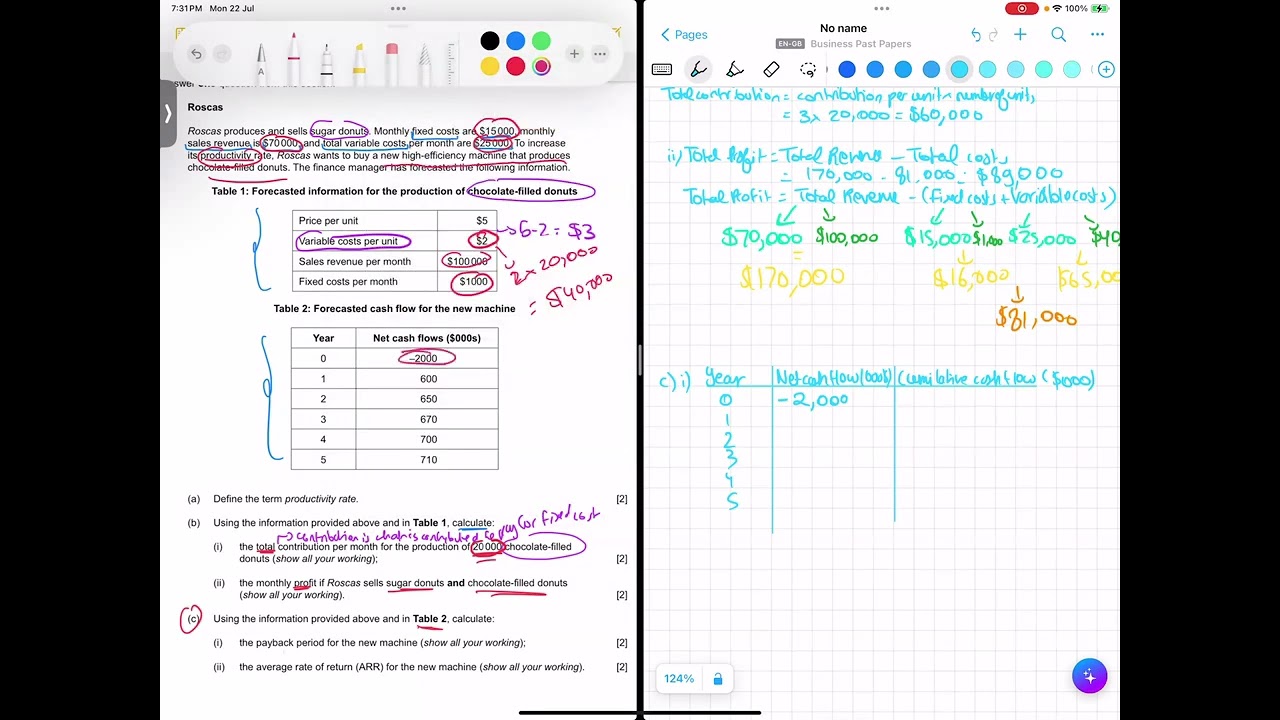 7:31 PM Mon 22 Jul
Roscas
Roscas produces and sells sugar donuts. Monthly fixed costs are $15000, monthly
sales revenue is $70000 and total variable costs per month are $25000. To increase
its productivity rate, Roscas wants to buy a new high-efficiency machine that produces
chocolate-filled donuts. The finance manager has forecasted the following information.
Table 1: Forecasted information for the production of chocolate-filled donuts
Price per unit $5
Variable costs per unit $2
Sales revenue per month $100000
Fixed costs per month $1000
5-2 = $3
2 x 20,000
= $40,000
Table 2: Forecasted cash flow for the new machine
Year Net cash flows ($000s)
0 –2000
1 600
2 650
3 670
4 700
5 710
(a) Define the term productivity rate. [2]
(b) Using the information provided above and in Table 1, calculate:
contribution is what is contributed to pay for fixed cost
(i) the total contribution per month for the production of 20000 chocolate-filled
donuts (show all your working); [2]
(ii) the monthly profit if Roscas sells sugar donuts and chocolate-filled donuts
(show all your working). [2]
(c) Using the information provided above and in Table 2, calculate:
(i) the payback period for the new machine (show all your working); [2]
(ii) the average rate of return (ARR) for the new machine (show all your working). [2]
100%
Pages
No name
EN-GB Business Past Papers
Total contribution = contribution per unit x number of units
= 3 x 20,000 = $60,000
ii) Total Profit = Total Revenue - Total costs
= 170,000 - 81,000 = $89,000
Total Profit = Total Revenue - (fixed costs + Variable costs)
$70,000 $100,000 $15,000 $1,000 $25,000 $40
=
$170,000 $16,000 $65,00
$81,000
c) i) Year Net cash flow (000s) Cumulative cash flow ($000)
0 -2,000
1
2
3
4
5
124%